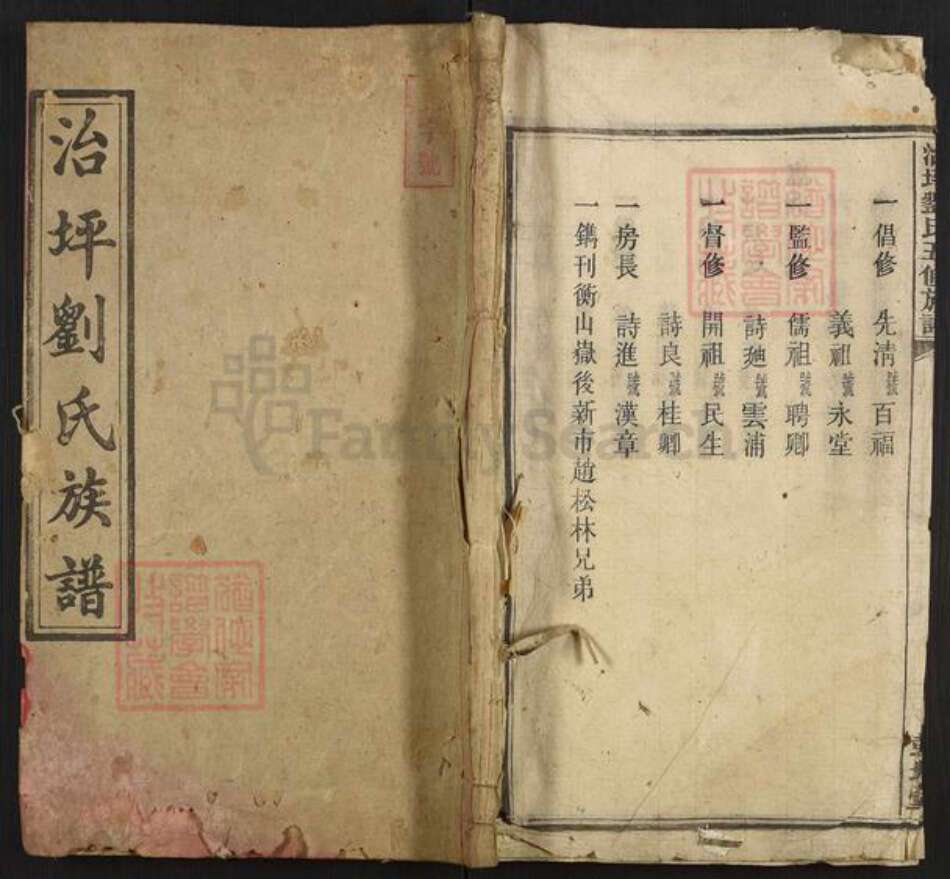 治坪劉氏族譜
號
治坪劉氏五修族譜
一倡修 先清號百福
義祖號永堂
一監修 儒祖號聘卿
詩廸號雲浦
一督修 開祖號民生
詩良號桂卿
一房長 詩進號漢章
一鐫刊衡山嶽後新市趙松林兄弟
FamilySearch